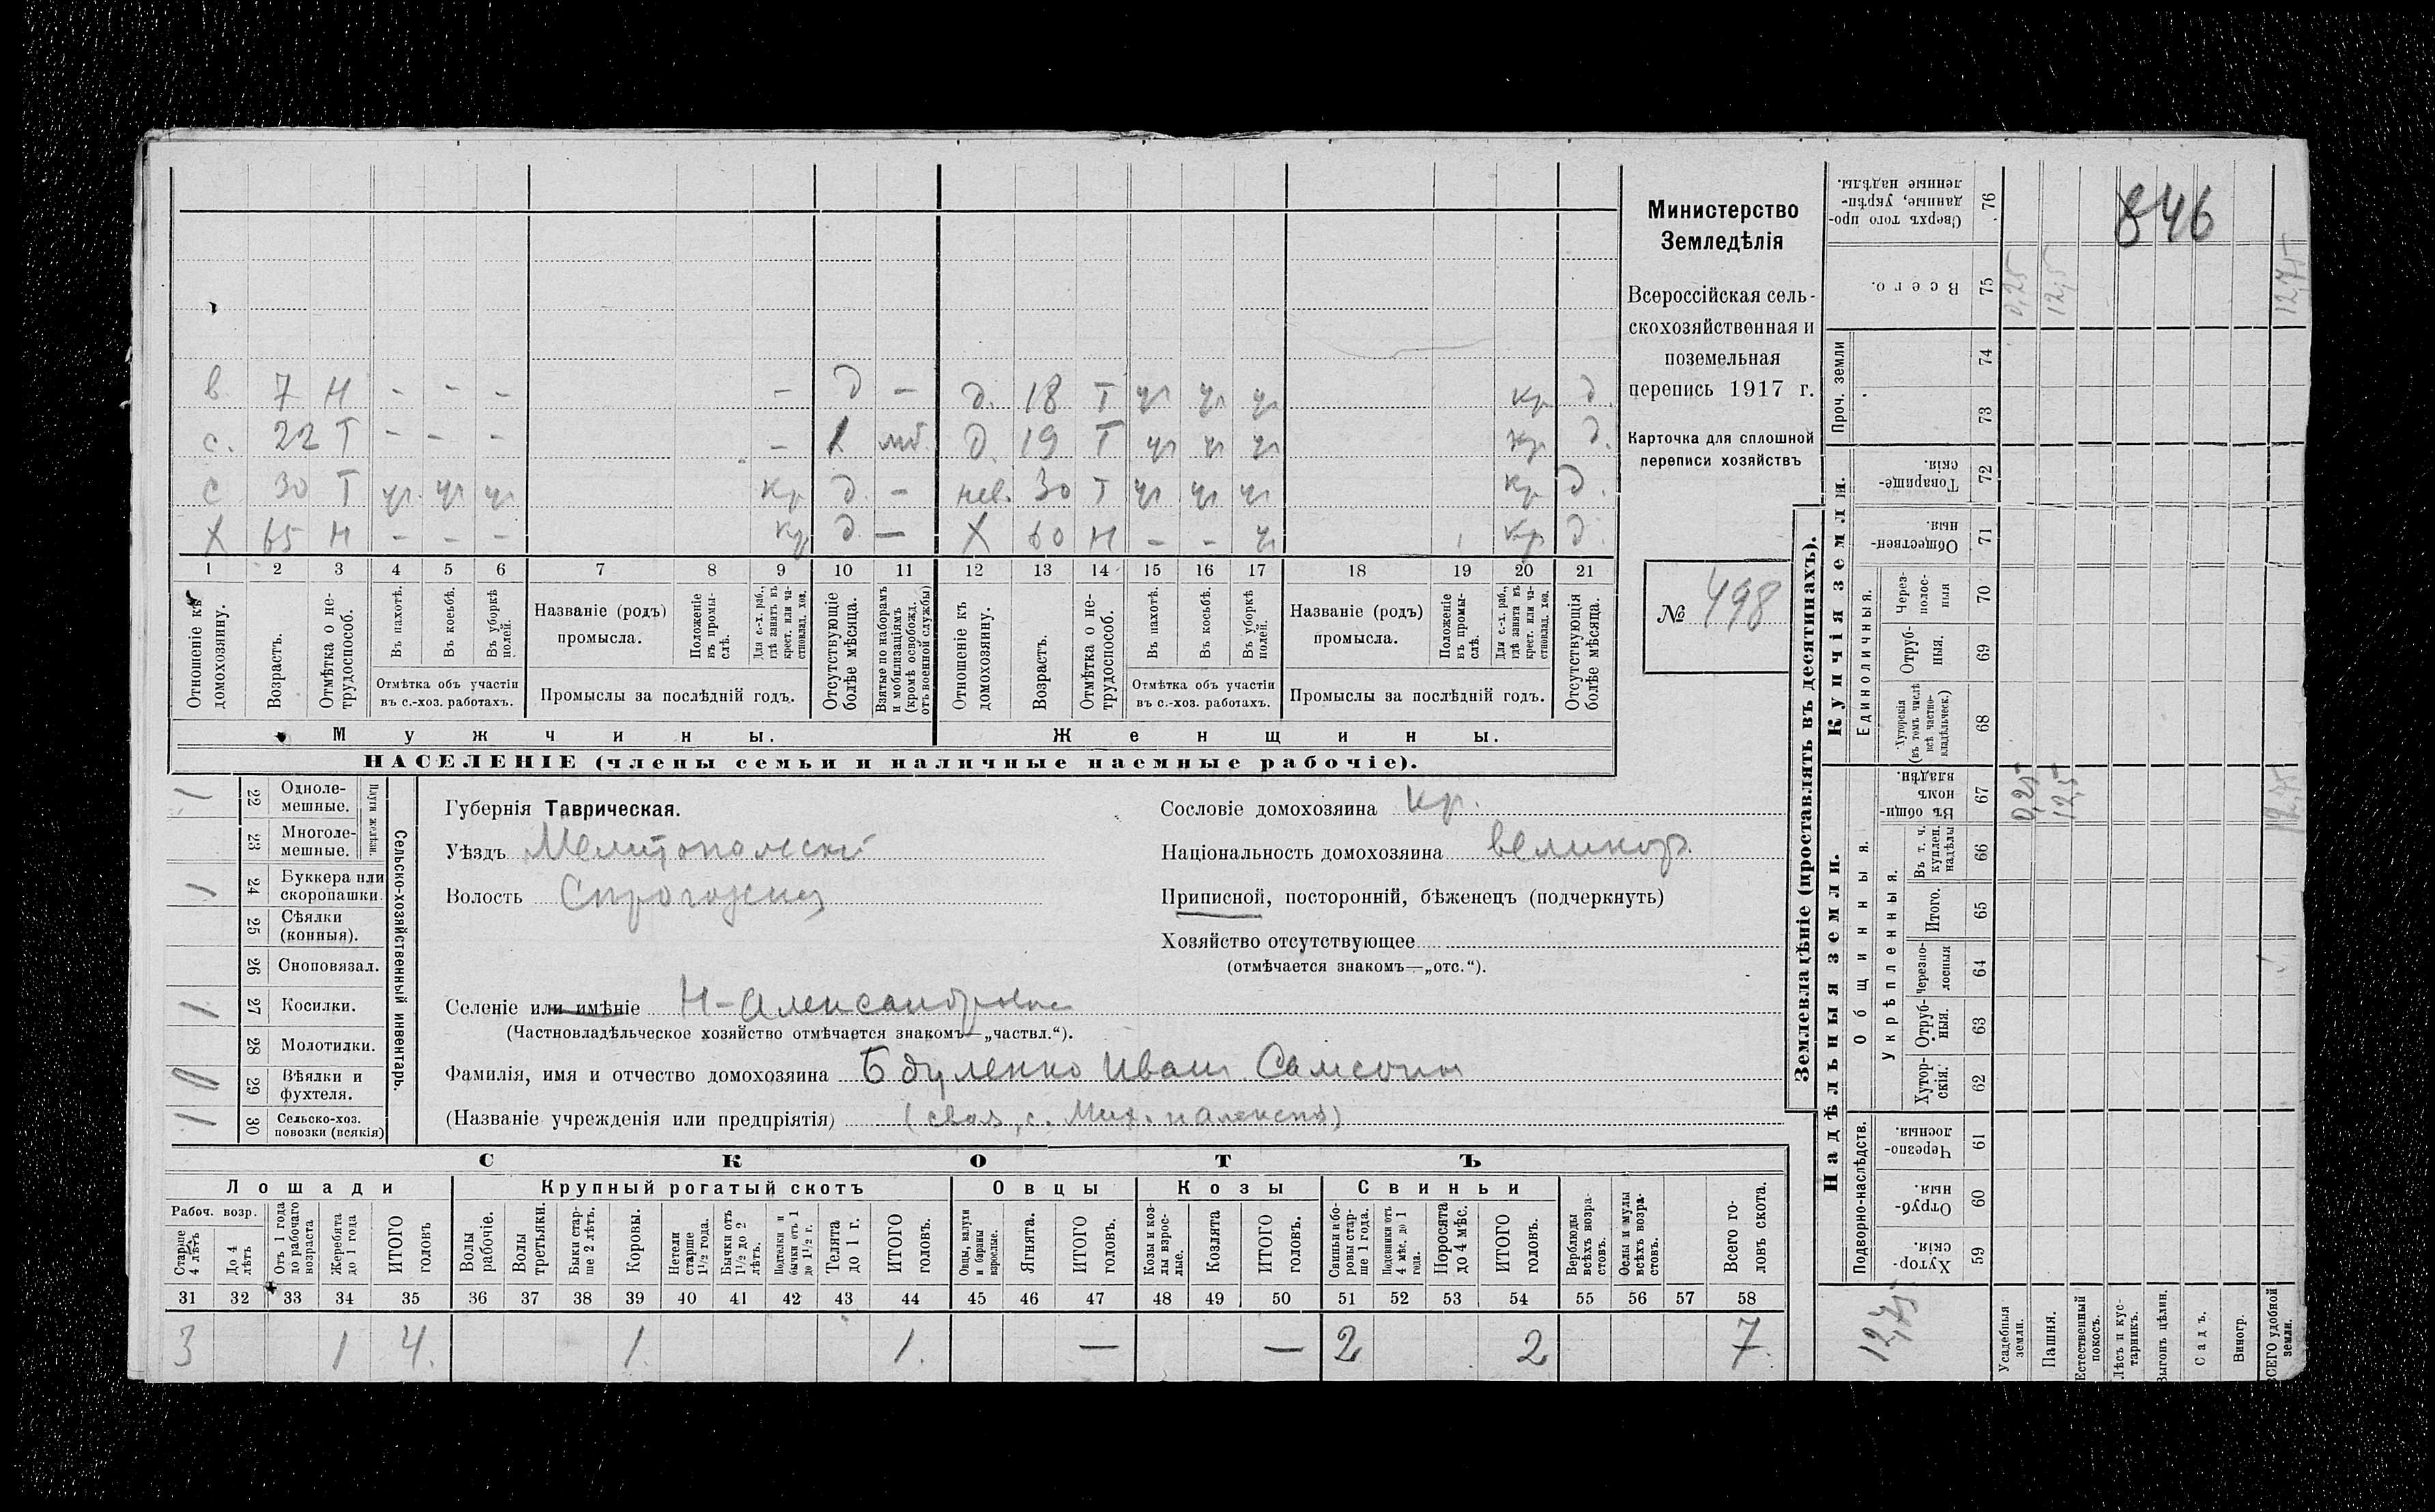 846
Министерство
Земледѣлія
Всероссійская сель-
скохозяйственная и
поземельная
перепись 1917 г.
Карточка для сплошной
переписи хозяйствъ
№ 498
в. 7 Н - - - - д - д. 18 Т уч уч уч кр д.
с. 22 Т - - - - 1 мб. д. 19 Т уч уч уч кр д.
с 30 Т уч. уч уч кр д. - нев. 30 Т уч уч уч кр д.
Х 65 Н - - - кр д. — Х 60 Н - - уч кр д.
1 2 3 4 5 6 7 8 9 10 11 12 13 14 15 16 17 18 19 20 21
Отношеніе къ домохозяину.
Возрастъ.
Отмѣтка о не-трудоспособ.
Въ пахотѣ.
Въ косьбѣ.
Въ уборкѣ полей.
Отмѣтка объ участіи
въ с.-хоз. работахъ.
Названіе (родъ)
промысла.
Положеніе въ промы-слѣ.
Для с.-х. раб., гдѣ занятъ въ крест. или ча-стновлад. хоз.
Промыслы за послѣдній годъ.
Отсутствующіе болѣе мѣсяца.
Взятые по наборамъ и мобилизаціямъ (кромѣ освобожд. отъ военной службы)
Отношеніе къ домохозяину.
Возрастъ.
Отмѣтка о не-трудоспособ.
Въ пахотѣ.
Въ косьбѣ.
Въ уборкѣ полей.
Отмѣтка объ участіи
въ с.-хоз. работахъ.
Названіе (родъ)
промысла.
Положеніе въ промы-слѣ.
Для с.-х. раб., гдѣ занята въ крест. или ча-стновлад. хоз.
Промыслы за послѣдній годъ.
Отсутствующія болѣе мѣсяца.
Мужчины. Женщины.
НАСЕЛЕНІЕ (члены семьи и наличные наемные рабочіе).
Сельско-хозяйственный инвентарь.
Плуги желѣзн.
1 22 Однолемешные.
23 Многолемешные.
1 24 Буккера или скоропашки.
25 Сѣялки (конныя).
26 Сноповязал.
1 27 Косилки.
28 Молотилки.
29 Вѣялки и фухтеля.
1 30 Сельско-хоз. повозки (всякія)
Губернія Таврическая.
Уѣздъ Мелитопольскі
Волость
Селеніе или имѣніе Н-Александровка
(Частновладѣльческое хозяйство отмѣчается знакомъ—„частвл.“).
Фамилія, имя и отчество домохозяина Бдуленко Иван Самсонов
(Названіе учрежденія или предпріятія)
Сословіе домохозяина кр.
Національность домохозяина великор.
Приписной, посторонній, бѣженецъ (подчеркнуть)
Хозяйство отсутствующее
(отмѣчается знакомъ—„отс.“).
СКОТЪ
Лошади Крупный рогатый скотъ Овцы Козы Свиньи
Рабоч. возр.
Старше 4 лѣтъ
До 4 лѣтъ
Отъ 1 года до рабочаго возраста
Жеребята до 1 года
ИТОГО головъ
Волы рабочіе.
Волы третьяки.
Быки стар-ше 2 лѣтъ.
Коровы.
Нетели старше 1½ года.
Бычки отъ 1½ до 2 лѣтъ.
Подтелки и бычки отъ 1 до 1½ г.
Телята до 1 г.
ИТОГО головъ.
Овцы, валухи и бараны взрослые.
Ягнята.
ИТОГО головъ.
Козы и коз-лы взрос-лые.
Козлята
ИТОГО головъ.
Свиньи и бо-ровы стар-ше 1 года.
Подсвинки отъ 4 мѣс. до 1 года.
Поросята до 4 мѣс.
ИТОГО головъ.
Верблюды всѣхъ возра-стовъ.
Ослы и мулы всѣхъ возра-стовъ.
Всего го-ловъ скота.
31 32 33 34 35 36 37 38 39 40 41 42 43 44 45 46 47 48 49 50 51 52 53 54 55 56 57 58
3 1 4. 1. 1. — — 2 2 7.
Землевладѣніе (проставлять въ десятинахъ).
Надѣльныя земли. Купчія земли.
Подворно-наслѣдств. Общинныя. Укрѣпленныя. Единоличныя. Проч. земли
59 Хутор-скія.
60 Отруб-ныя.
61 Черезпо-лосныя.
62 Хутор-скія.
63 Отруб-ныя.
64 Черезпо-лосныя
65 Итого.
66 Въ т. ч. куплен. надѣлы
67 Въ общин-номъ владѣн. 0,25 12,5 12,75
68 Хуторскія (въ томъ числѣ всѣ частно-владѣльческ.)
69 Отруб-ныя.
70 Через-полос-ныя
71 Обществен-ныя.
72 Товарище-скія.
73
74
75 Всего. 0,25 12,5 12,75
76 Сверхъ того про-данные, укрѣп-ленные надѣлы.
12,75
Усадебныя земли.
Пашня.
Естественный покосъ.
Лѣсъ и кус-тарникъ.
Выгонъ цѣлин.
Садъ.
Виногр.
ВСЕГО удобной земли.